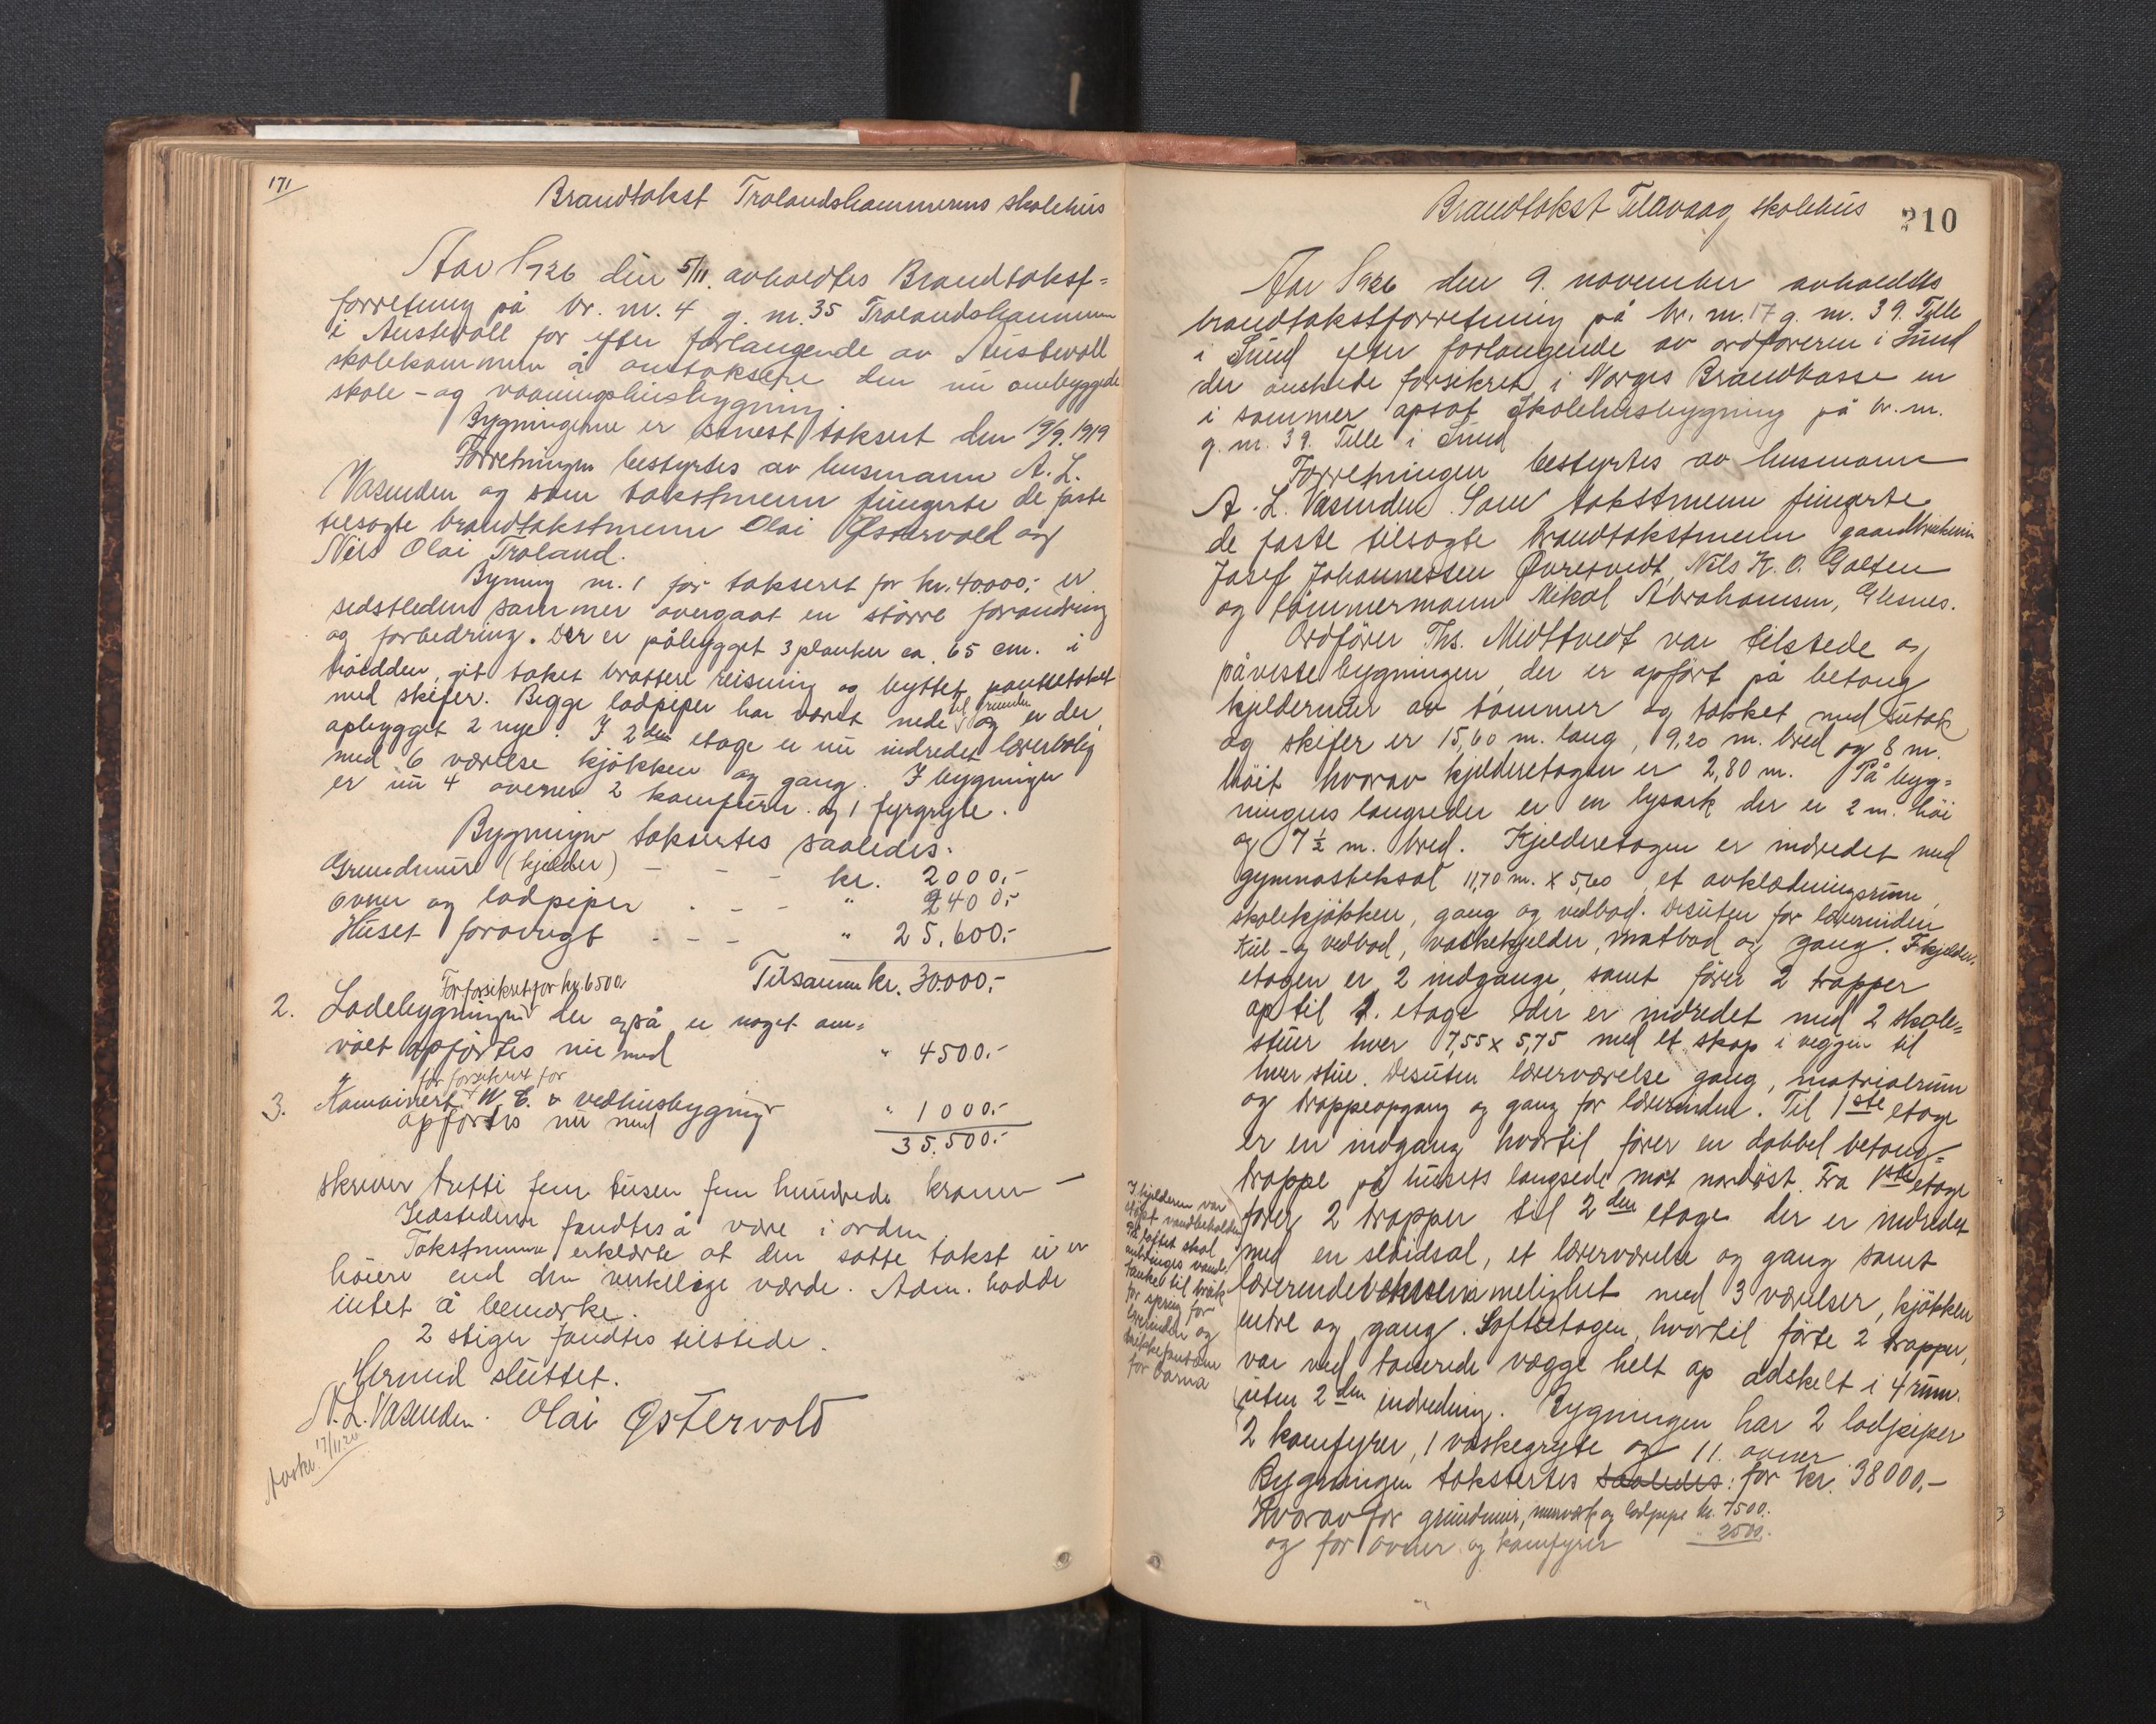 171
Brandtakst Trolandshammerens skolehus
Aar 1926 den 5/11. avholdtes Brandtakst=
forretning på br. nr. 4 g. nr. 35 Trolandshammeren
i Austevoll for efter forlangende av Austevoll
skolekommun å omtaksere den nu ombyggede
skole - og vaaningshusbygning.
Bygningerne er senest taksert den 19/9. 1919
Forretningen bestyrtes av lensmann A. L.
Vasenden og som takstmenn fungerte de faste
tilsagte brandtakstmenn Olai Østervold og
Nils Olai Troland.
Bygning nr. 1 før taksert for kr. 40000,- er
sidstleden sommer overgaat en større forandring
og forbedring. Der er påbygget 3 planker ca. 65 cm. i
høidden, git taket brattere reisning og byttet pannetaket
med skifer. Begge lodpiper har været nede til grunden og er der
opbygget 2 nye. I 2den etage er nu indredet lærerbolig
med 6 værelse kjøkken og gang. I bygningen
er nu 4 ovener 2 komfurer og 1 fyrgryte.
Bygningen taksertes saaledes:
Grundmure (kjelder) - - - kr. 2000,-
ovner og lodpiper . - - " 2400,-
Huset forøvrigt . - - " 25.600,-
Tilsammen kr. 30.000,-
Før forsikret for kr. 6500
2. Ladebygningen der også er noget om=
vølt opførtes nu med " 4500.-
før forsikret for
3. Kombinert W. C. & vedhusbygning
opførtes nu med " 1000.-
35.500.-
skriver tretti fem tusen fem hundrede kroner -
Ildstederne fandtes å være i orden.
Takstmenn erklærte at den satte takst ei er
høiere end den virkelige værde. Adm. hadde
intet å bemærke.
2 stiger fandtes tilstede.
Hermed sluttet.
A. L. Vasenden. Olai Østervold
Avskr. 17/11 26
Brandtakst Telavaag skolehus
210
Aar 1926 den 9. november avholdtes
brandtakstforretning på br. nr. 17 g. nr. 39. Telle
i Sund efter forlangende av ordføreren i Sund
der ønskede forsikret i Norges Brandkasse en
i sommer opsat skolehusbygning på br. nr.
g. nr. 39. Telle i Sund
Forretningen bestyrtes av lensmann
A. L. Vasenden. Som takstmenn fungerte
de faste tilsagte brandtakstmenn gaardbrukerne
Josef Johannessen Øvretvedt, Nils K. O. Golten
og tømmermann Mikal Abrahamsen, Glesnes.
Ordfører Ths. Midttvedt var tilstede og
påviste bygningen, der er opført på betong
kjeldermur av tømmer og tækket med sutak
og skifer er 15,60 m. lang, 9,20 m. bred og 8 m.
høit hvorav kjelderetagen er 2,80 m. På byg=
ningens langsider er en lysark der er 2 m. høi
og 7½ m. bred. Kjelderetagen er indredet med
gymnastiksal 11,70 m. x 5,60, et avklædningsrum,
skolekjøkken, gang og vedbod. Desuten for lærerinden
kul - og vedbod, vaskekjelder, matbod og gang. I kjelder=
etagen er 2 indgange, samt fører 2 trapper
op til 1. etage der er indredet med 2 skole=
stuer hver 7,55 x 5,75 med et skap i veggen til
hver stue. Desuten lærerværelse gang, matrialrum
og trappeopgang og gang for lærerinden. Til 1ste etage
er en indgang hvortil fører en dobbel betong=
trappe på husets langside mot nordøst. Fra 1ste etage
fører 2 trapper til 2den etage der er indredet
med en sløidsal, et lærerværelse og gang samt
med 3 værelser, kjøkken
entre og gang. Loftsetagen, hvortil førte 2 trapper,
var ved tømrede vægge helt op adskelt i 4 rum.
uten 2den indredning. Bygningen har 2 lodpiper
2 komfyrer, 1 vaskegryte og 11. ovner
Bygningen takstertes saaledes: for kr. 38000,-
Hvorav for grundmur, murværk og lodpipe kr. 7500.
og for ovner og komfyrer " 2500.
I kjelderen var
støpt vandbeholder
På loftet skal
anbringes vand=
tanke til
for spring for
lærerinden og
drikkefontæne
for barna